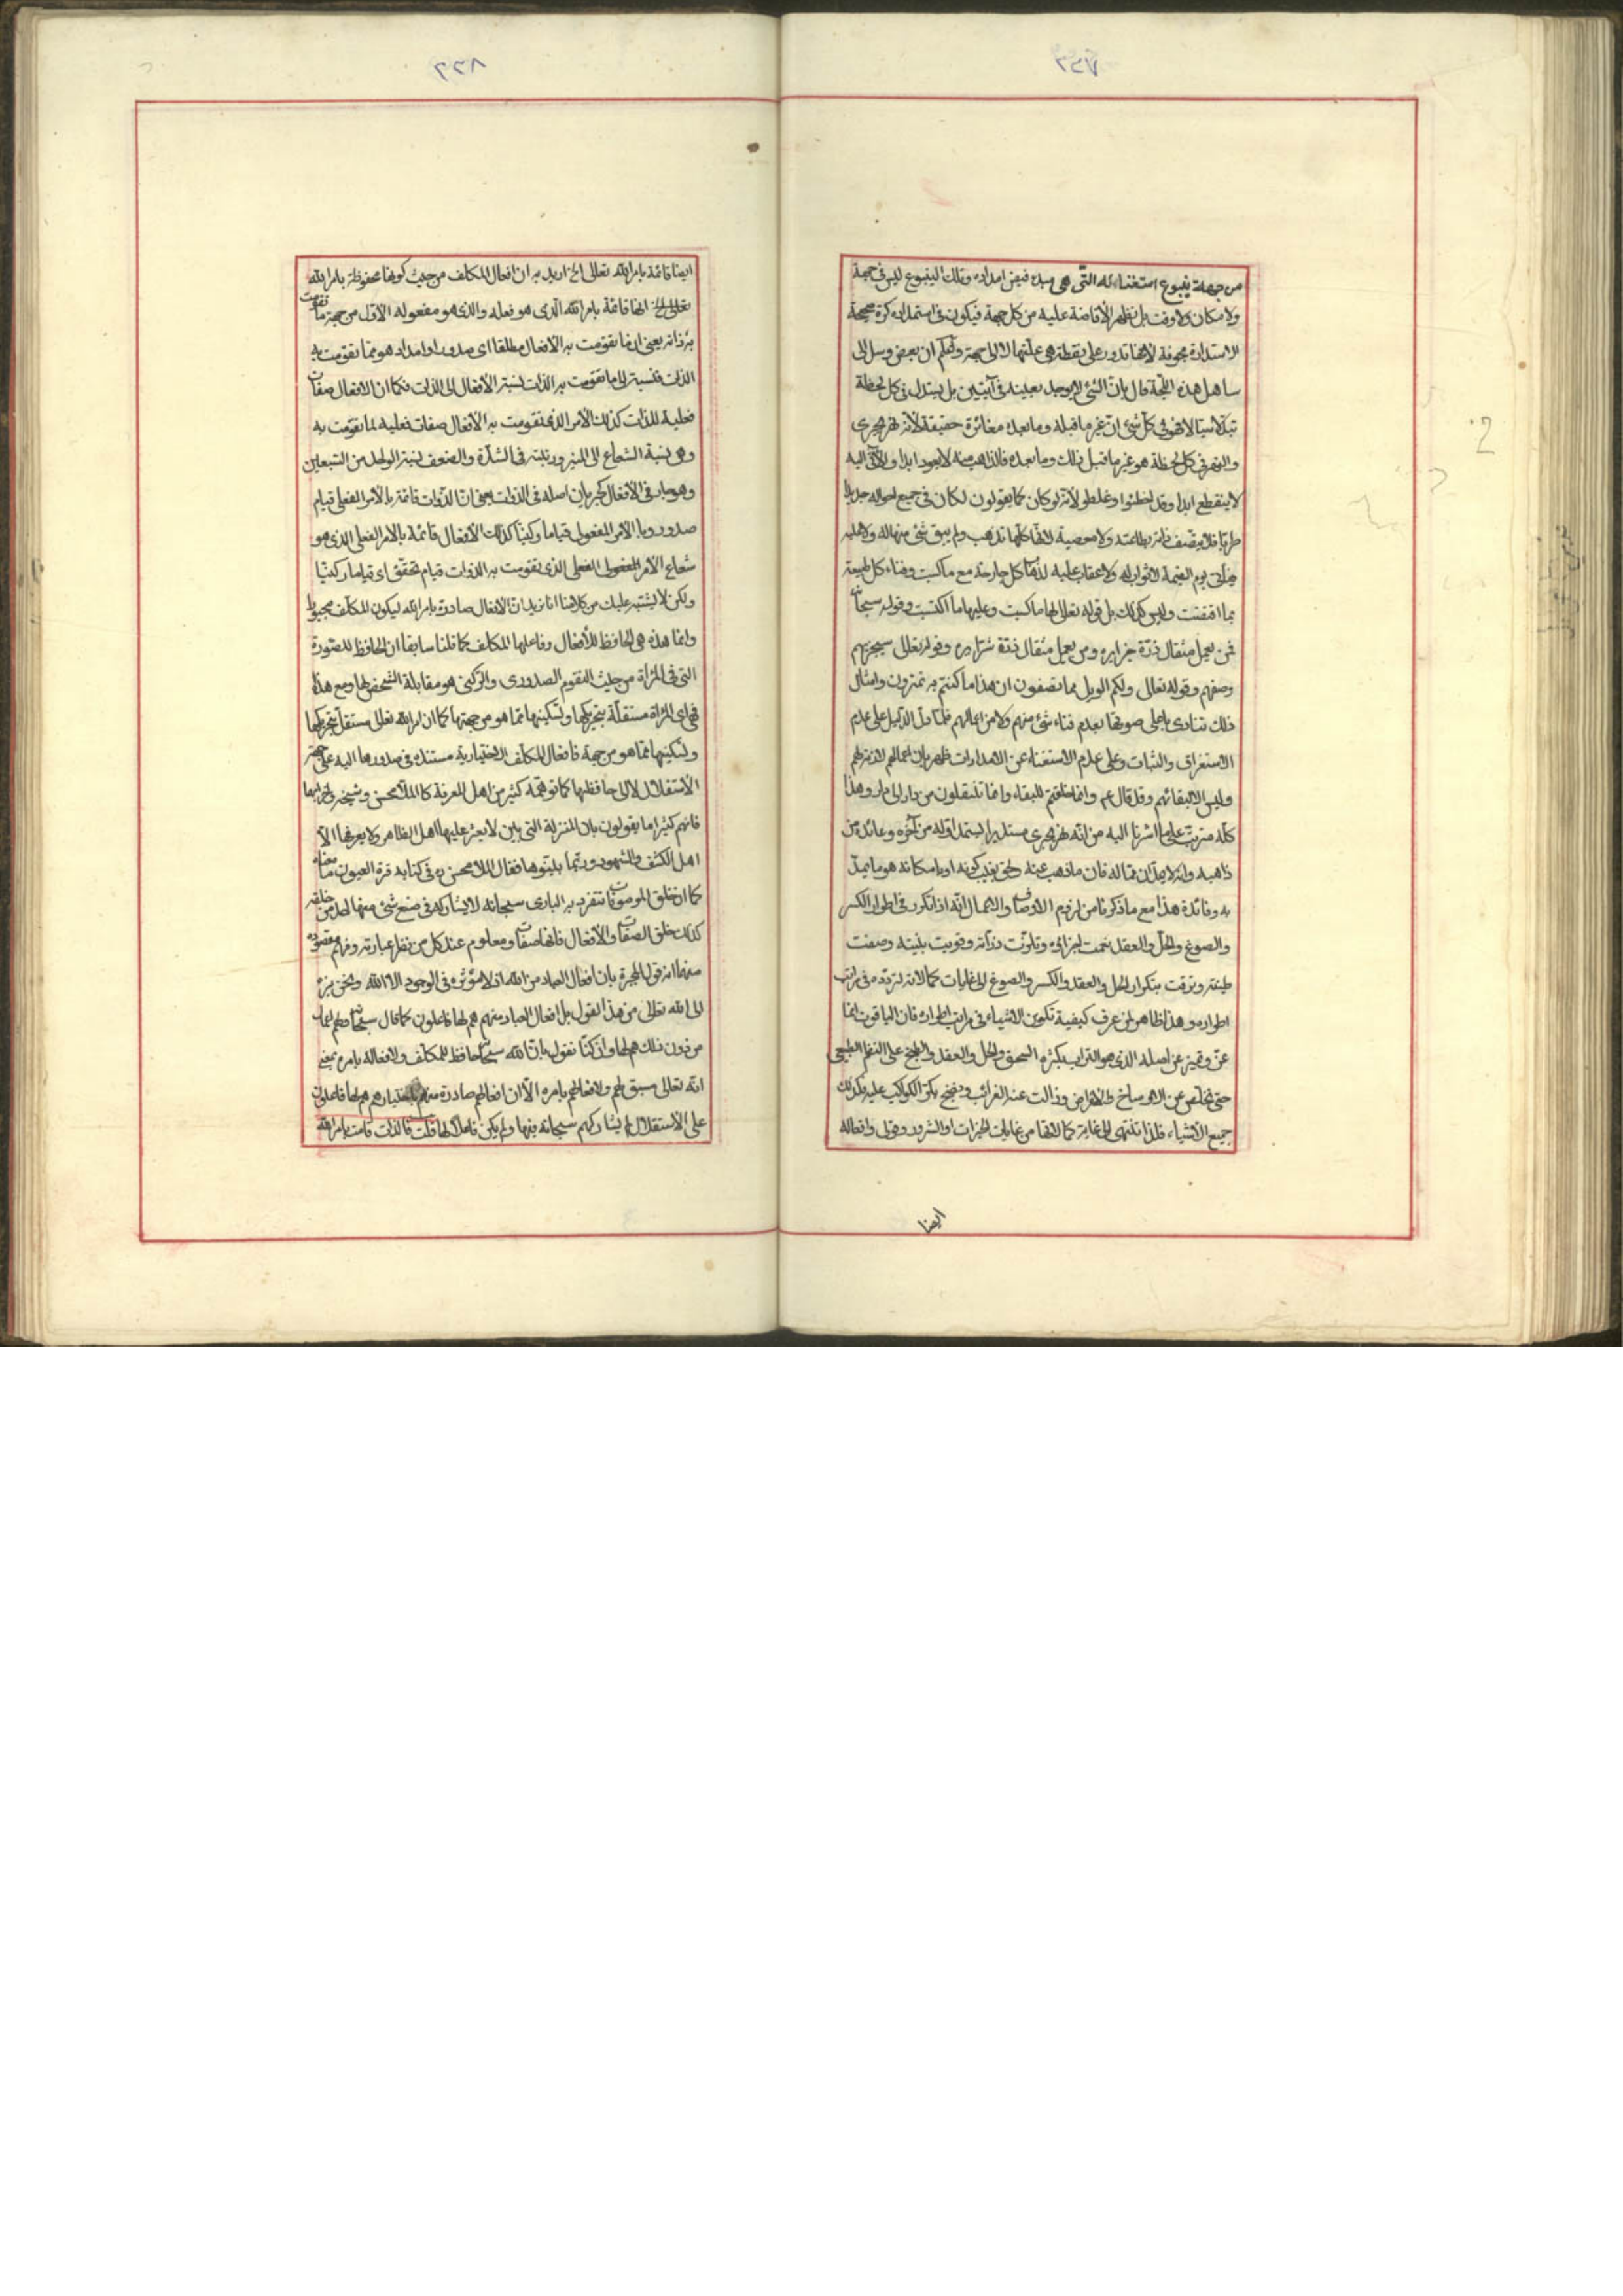 من جهة ينبوع استغنائه التي هي مبدء فيض امداده وتلك الينبوع ليس في جهة
ولا مكان ولا وقت بل تظهر الأفاضة عليه من كل جهة فيكون في استمداده كرة صحيحة
الاستدارة مجوفة لانها تدور على نقطة هي علتها لا الى جهة واعلم ان بعض
ساهل هذه اللجة قال بان الشئ لا يوجد بعينه في آنين بل يتبدل في كل لحظة
تبدلا سيالا فهو في كل شئ ان غير ما قبله وما بعده مغائرة حقيقة لأنه نهر يجري
والنهر في كل لحظة هو غير ما قبل ذلك وما بعده فالذاهب منه لا يعود ابدا والآتي اليه
لا ينقطع ابدا وقد اخطئوا وغلطوا لأنه لو كان كما يقولون لكان في جميع احواله جديدا
طريا فلا يتصف ذاته بطاعته ولا معصية لانها كلها تذهب ولم يبق شئ منها له ولا عليه
فيأتي يوم القيمة لا ثواب له ولا عقاب عليه لذهاب كل جارحة مع ما كسبت وفناء كل طبيعة
بما اقتضت وليس كذلك بل قوله تعالى لها ما كسبت وعليها ما اكتسبت وقوله سبحانه
فمن يعمل مثقال ذرة خيرا يره ومن يعمل مثقال ذرة شرا يره وقوله تعالى سيجزيهم
وصفهم وقوله تعالى ولكم الويل مما تصفون ان هذا ما كنتم به تمترون وامثال
ذلك تنادي باعلى صوتها بعدم فناء شئ منهم ولا من اعمالهم فلما دل الدليل على عدم
الاستغراق والثبات وعلى عدم الاستغناء عن الامدادات ظهر بان اعمالهم لازمة لهم
وليس الا لبقائهم وقد قال ع وانما خلقتم للبقاء وانما تنتقلون من دار الى دار وهذا
كله مترتب على ما اشرنا اليه من انه نهر يجري مستديرا يستمد اوله من آخره وعائده من
ذاهبه وانه لا يمد ان مما له فان ما ذهب عنه ولحق بغيب كونه او بامكانه هو ما يمد
به وفائدة هذا مع ما ذكرنا من لزوم الاوصاف والاعمال انه اذا تكرر في اطوار الكسر
والصوغ والحل والعقد نعمت اجزائه وتلززت ذراته وقويت بنيته وصفت
طينته وترقت بتكرار الحل والعقد والكسر والصوغ الى غايات كمالاته لتردده في مراتب
اطواره وهذا ظاهر لمن عرف كيفية تكوين الاشياء في مراتب اطواره فان الياقوت انما
عز وتميز عن اصله الذي هو التراب بكثرة السحق والحل والعقد والطبخ على النظم الطبيعي
حتى تخلص عن الاوساخ والاعراض وزالت عنه الغرائب ونضج بكر الكواكب عليه وكذلك
جميع الأشياء فلذا تنتهي الى غاية كمالاتها من غايات الخيرات او الشرور وقولي وافعاله
ايضا
ايضا قائمة بامر الله تعالى الخ اريد به ان افعال المكلف من حيث كونها محفوظة بامر الله
تعالى انها قائمة بامر الله الذي هو فعله والذي هو مفعوله الأول من جهة ما تقومت
به ذاته يعني انما تقومت به الافعال مطلقا اي صدورا وامدادا هو مما تقومت به
الذات فنسبته الى ما تقومت به الذات نسبة الأفعال الى الذات فكما ان الافعال صفات
فعلية للذات كذلك الأمر الذي تقومت به الأفعال صفات فعلية لما تقومت به
وهي نسبة الشعاع الى المنير ورتبته في الشدة والضعف نسبة الواحد من السبعين
وهو جار في الأفعال كجريان اصله في الذوات يعني ان الذوات قائمة بالأمر الفعلي قيام
صدور وبالأمر المفعولي قياما ركنيا كذلك الأفعال قائمة بالامر الفعلي الذي هو
شعاع الأمر المفعولي الفعلي الذي تقومت به الذوات قيام تحقق اي قياما ركنيا
ولكن لا يشتبه عليك من كلامنا انا نريد ان الافعال صادرة بامر الله ليكون المكلف مجبورا
وانما هذه هي الحافظ للأفعال وفاعلها المكلف كما قلنا سابقا ان الحافظ للصورة
التي في المرآة من حيث التقوم الصدوري والركني هو مقابلة الشخص لها ومع هذا
فهي اي المرآة مستقلة بتحريكها وتسكينها مما هو من جهتها كما ان امر الله تعالى مستقل بتحريكها
وتسكينها مما هو من جهة فافعال المكلف الاختيارية مستندة في صدورها اليه على جهة
الأستقلال لا الى حافظها كما توهمه كثير من اهل المعرفة كالملا محسن وشيخه واحزابهما
فانهم كثيرا ما يقولون بان المنزلة التي بين لا يعثر عليها اهل الظاهر ولا يعرفها الا
اهل الكشف والشهود وربما بينوها فقال الملا محسن ره في كتابه قرة العيون ما معناه
كما ان خلق الموصوفات تتفرد به الباري سبحانه لا يشاركه في صنع شئ منها احد من خلقه
كذلك خلق الصفات والأفعال فانها صفات ومعلوم عند كل من نظر عبارته وفهم مقصوده
منها انه قول المجبرة بان افعال العباد من الله اذ لا مؤثر في الوجود الا الله ونحن نبرء
الى الله تعالى من هذا القول بل افعال العباد منهم هم لها فاعلون كما قال سبحانه ولهم اعمال
من دون ذلك هم لها وان كنا نقول بان الله سبحانه حافظ للمكلف ولافعاله بامره بمعنى
انه تعالى مبق لهم ولافعالهم بامره الا ان افعالهم صادرة منهم باختيارهم هم لها فاعلون
على الأستقلال لم يشاركهم سبحانه فيها ولم يكن فاعلا لها قلت فالذات قامت بامر الله